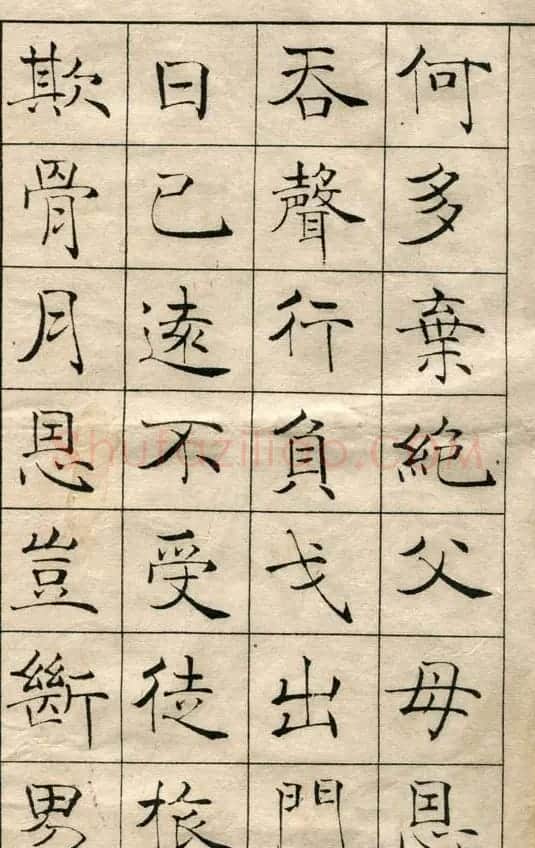 何多棄絶父母恩
吞聲行負戈出門
日已遠不受徒旅
欺骨月恩豈斷男
Shufaziliao.COM